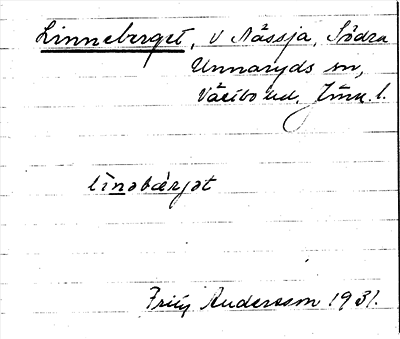 Linneberget, v Nässja, Södra
Unnaryds sn,
Västbo hd. Jönk. l.
línəbǽrjət
Fritz Andersson 1931.